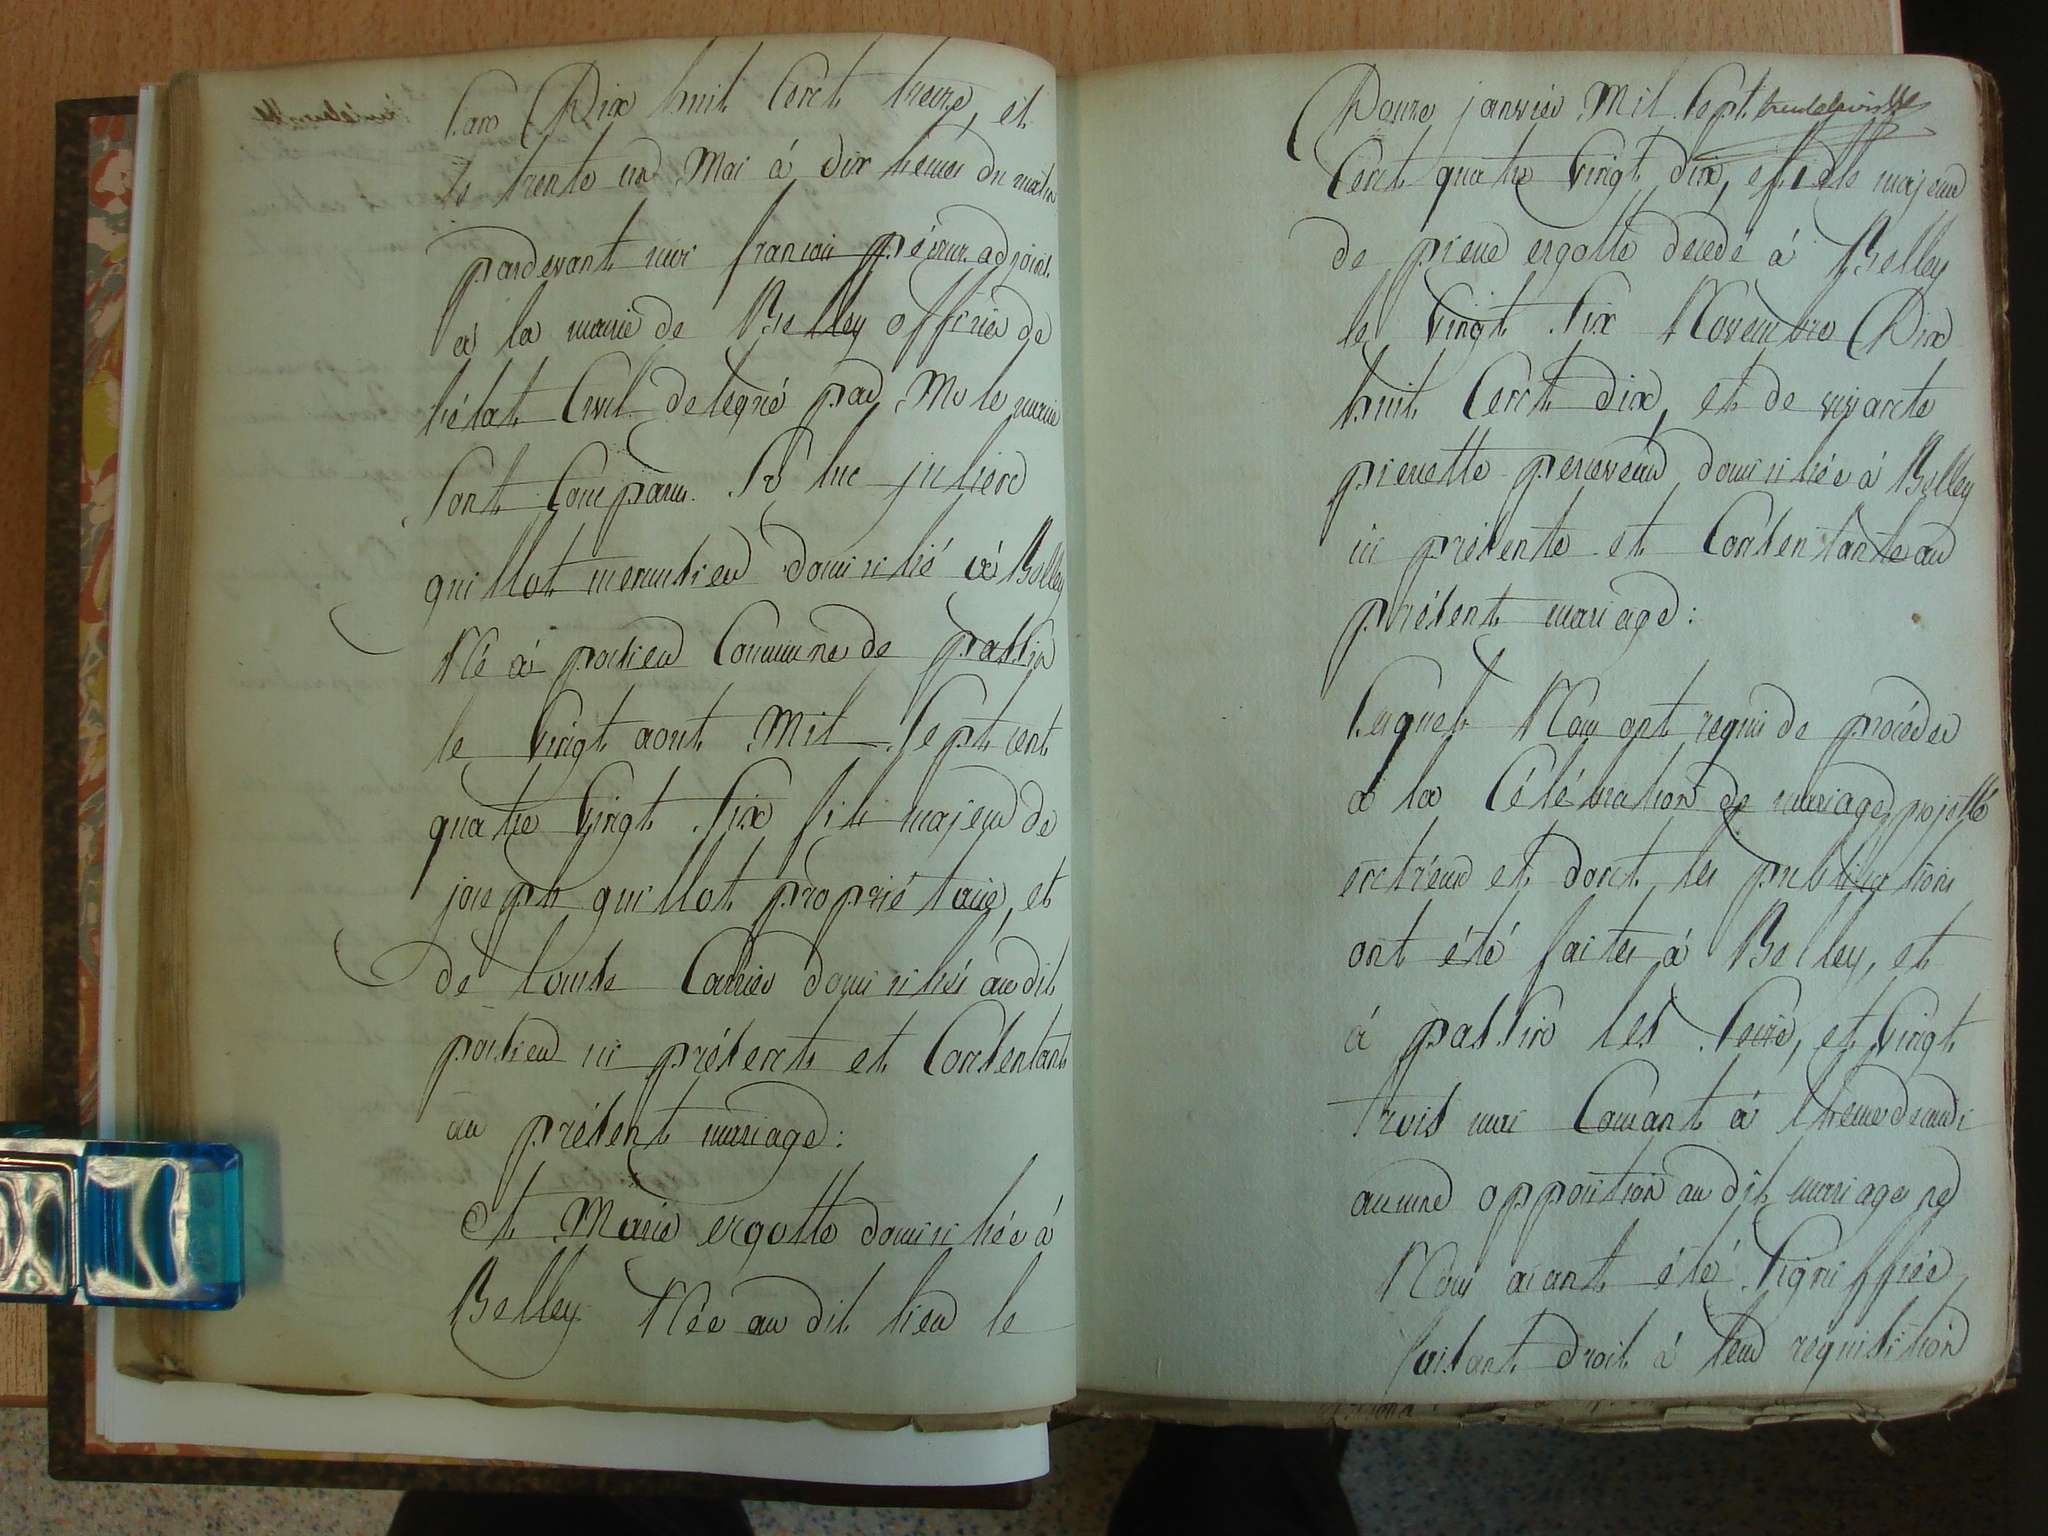 L'an Dix huit Cent treize, et
le trente un Mai à dix heures du matin
pardevant nous françois adjoint
à la mairie de Belley officier de
l'état Civil delegué par Mr le maire
Sont Comparus Sr luc julien
guillot menuisier domicilié à Belley
Né à poisieu Commune de passin
le Vingt aout Mil Sept cent
quatre Vingt Six fils majeur de
joseph guillot propriétaire, et
de louise Carrier domiciliés au dit
poisieu ici présents et Consentants
au présent mariage:
Et Marie ergotte domiciliée à
Belley Née au dit lieu le
Douze janvier Mil Sept
Cent quatre Vingt dix, fille majeure
de pierre ergotte decedé à Belley
le Vingt Six Novembre Dix
huit Cent dix, et de vivante
pierrette perceveau domiciliée à Belley
ici présente et Consentante au
présent mariage:
Lesquels Nous ont requis de procéder
à la Célébration de mariage projetté
entr'eux et dont les publications
ont été faites à Belley, et
à passin les Seize, et Vingt
trois mai Courant à l'heure de midi
aucune opposition au dit mariage ne
Nous aiant été Signiffiée,
faisant droit à leur requisition